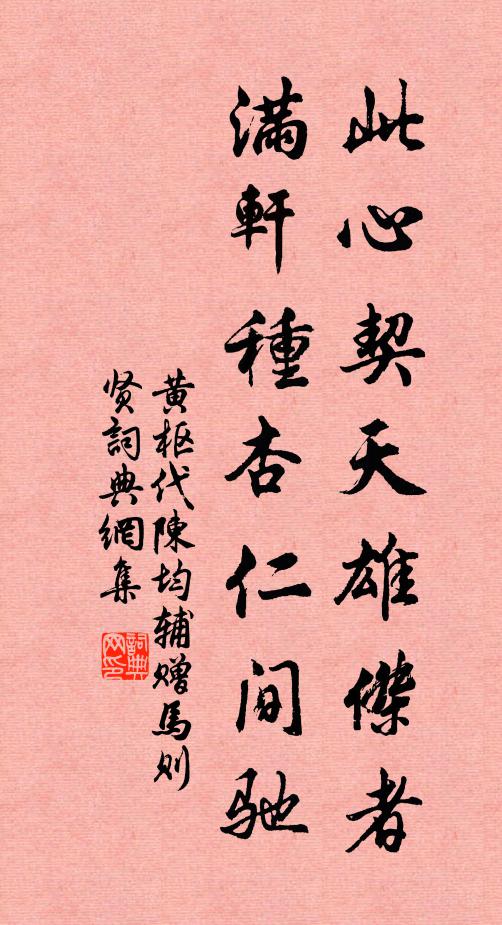 此心契天雄傑者
满軒種杏仁间驰
黄枢代陳均辅赠馬则
贤詞典網集
詞典网印